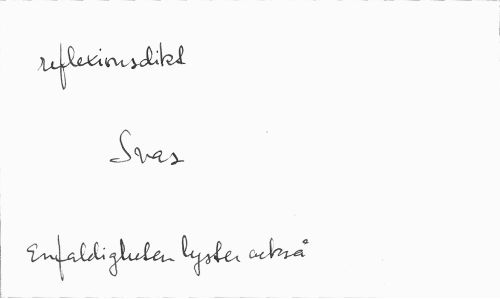 reflexionsdikt
Svar
Enfaldigheten lyster också